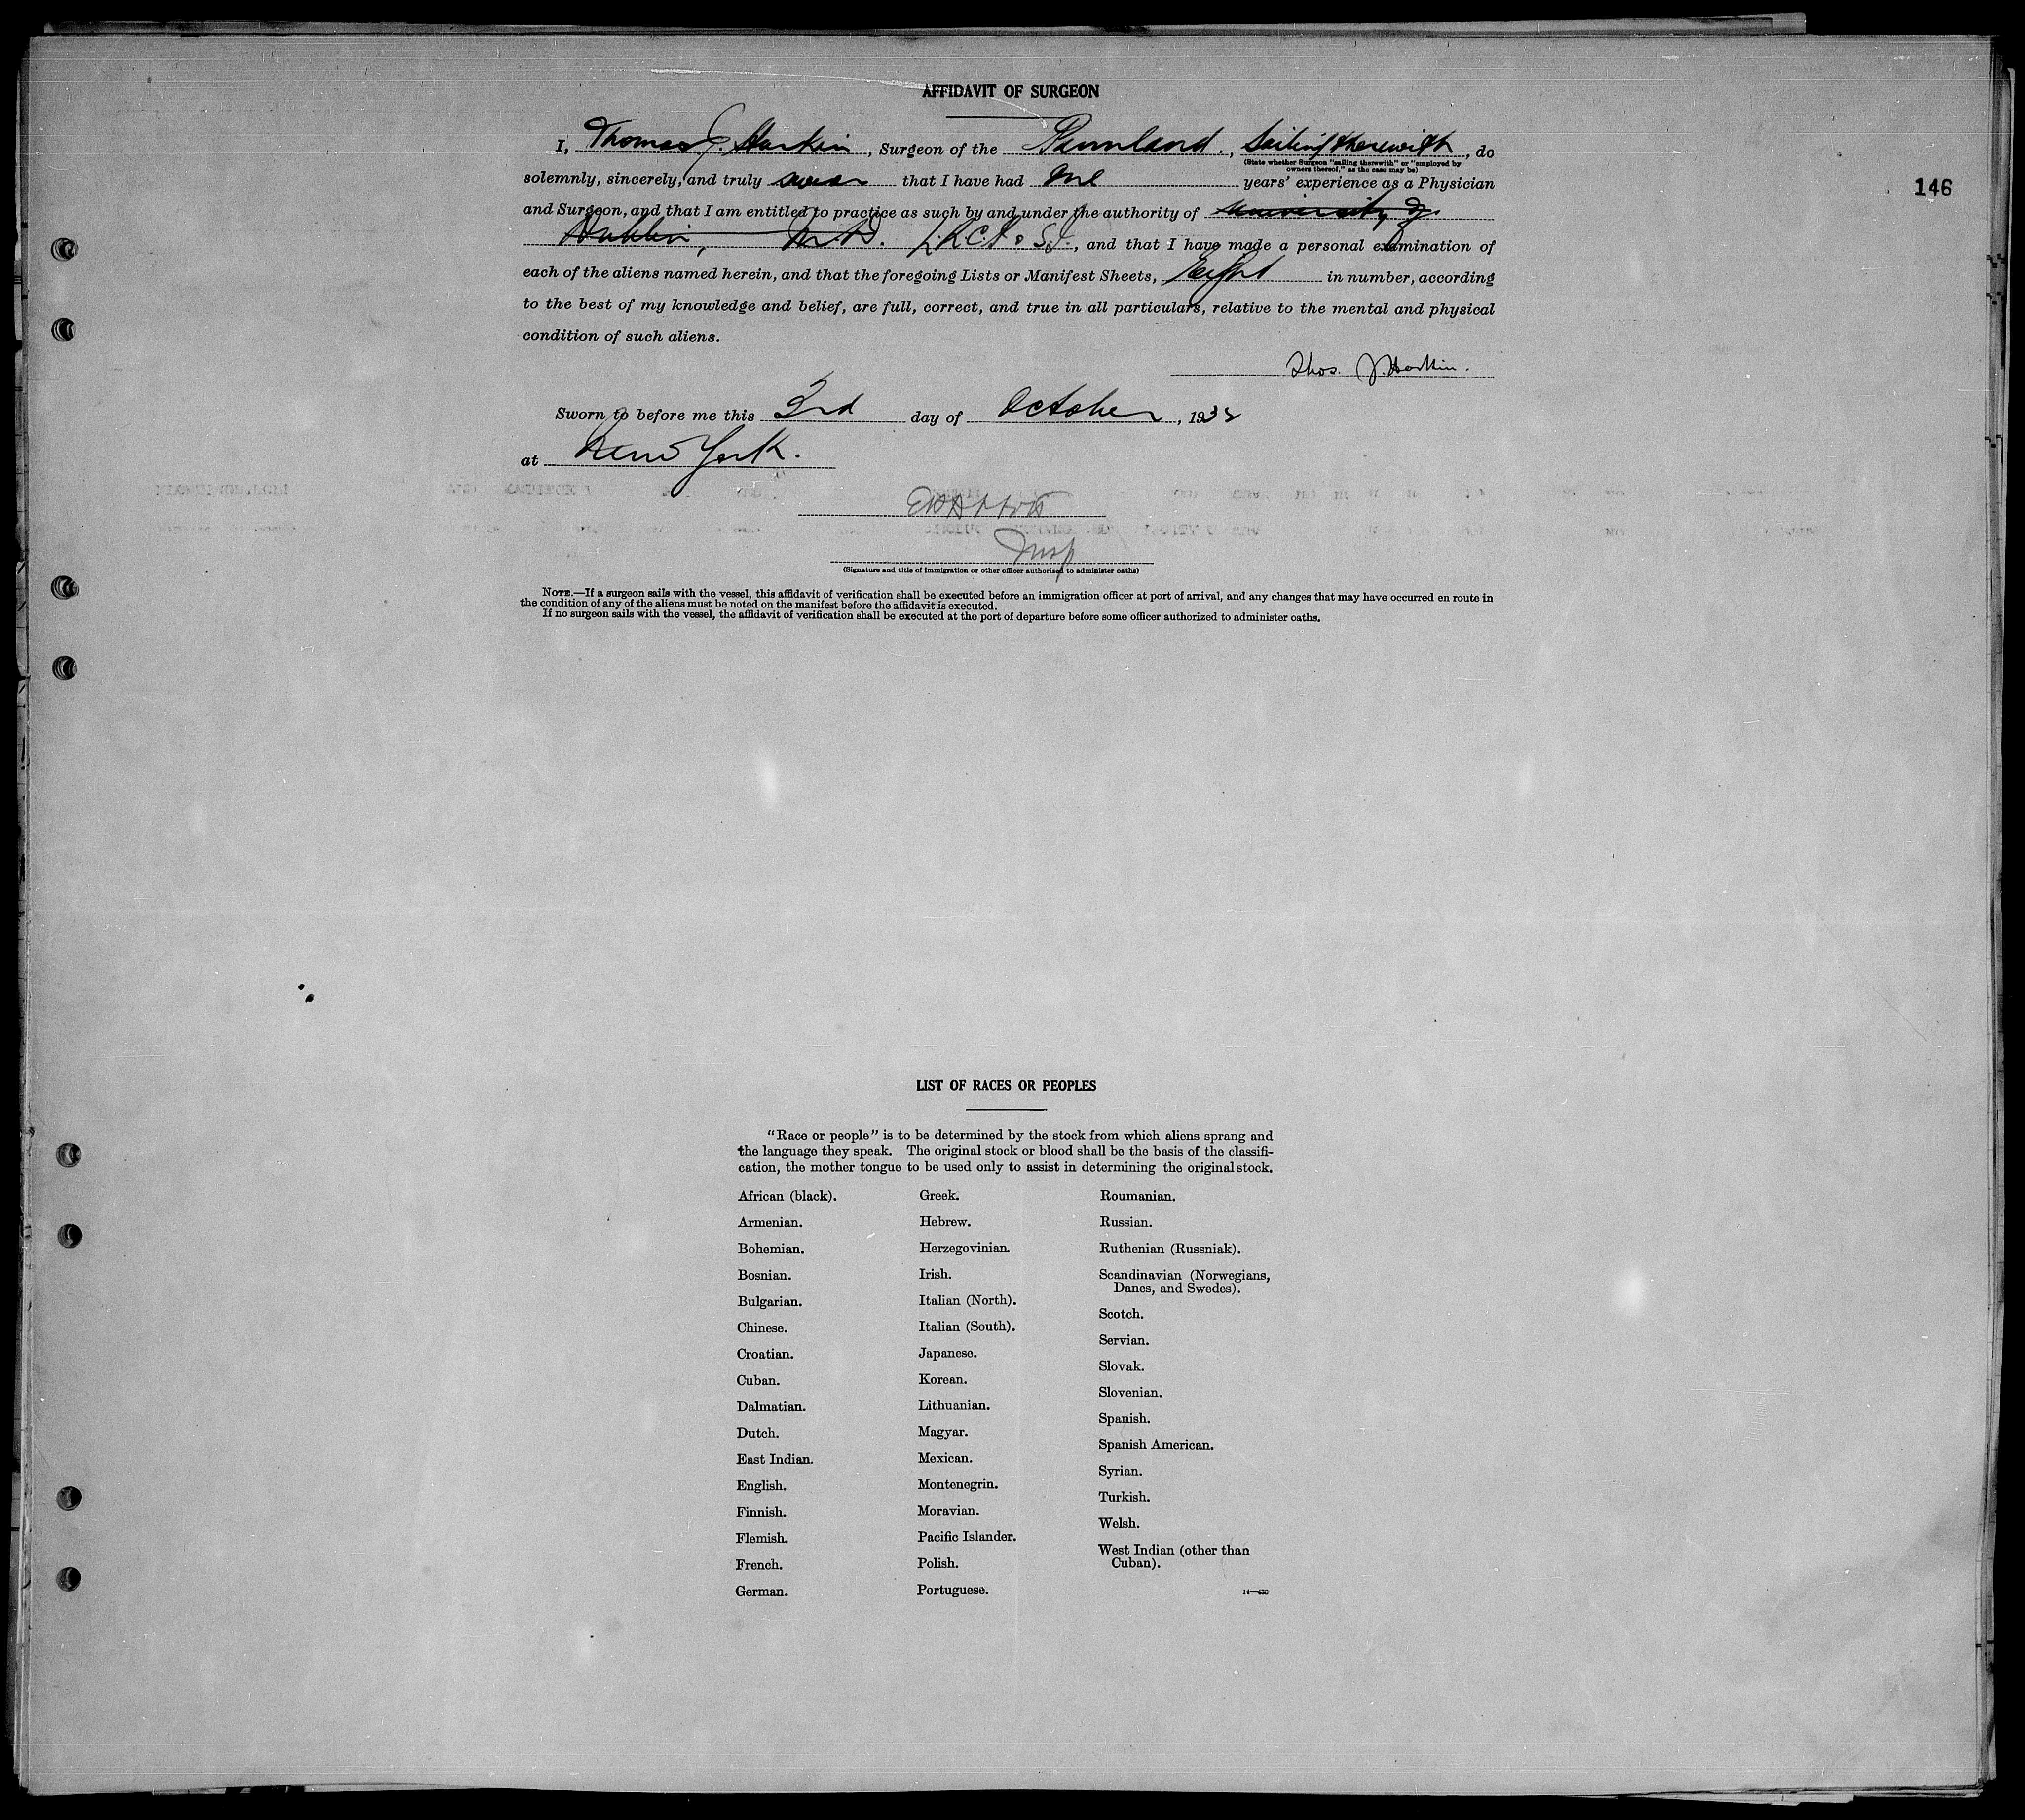 AFFIDAVIT OF SURGEON
I, Thomas J. Harkin, Surgeon of the Pennland., Sailing therewith, do
(State whether Surgeon "sailing therewith" or "employed by
owners thereof," as the case may be)
146
solemnly, sincerely, and truly swear that I have had one years' experience as a Physician
and Surgeon, and that I am entitled to practice as such by and under the authority of University of
Dublin, M.D. L.R.C.P. & S.I., and that I have made a personal examination of
each of the aliens named herein, and that the foregoing Lists or Manifest Sheets, Eight in number, according
to the best of my knowledge and belief, are full, correct, and true in all particulars, relative to the mental and physical
condition of such aliens.
Thos. J. Harkin.
Sworn to before me this 3rd day of October, 1932
at New York.
Insp
(Signature and title of immigration or other officer authorized to administer oaths)
NOTE.—If a surgeon sails with the vessel, this affidavit of verification shall be executed before an immigration officer at port of arrival, and any changes that may have occurred en route in
the condition of any of the aliens must be noted on the manifest before the affidavit is executed.
If no surgeon sails with the vessel, the affidavit of verification shall be executed at the port of departure before some officer authorized to administer oaths.
LIST OF RACES OR PEOPLES
"Race or people" is to be determined by the stock from which aliens sprang and
the language they speak. The original stock or blood shall be the basis of the classifi-
cation, the mother tongue to be used only to assist in determining the original stock.
African (black).
Armenian.
Bohemian.
Bosnian.
Bulgarian.
Chinese.
Croatian.
Cuban.
Dalmatian.
Dutch.
East Indian.
English.
Finnish.
Flemish.
French.
German.
Greek.
Hebrew.
Herzegovinian.
Irish.
Italian (North).
Italian (South).
Japanese.
Korean.
Lithuanian.
Magyar.
Mexican.
Montenegrin.
Moravian.
Pacific Islander.
Polish.
Portuguese.
Roumanian.
Russian.
Ruthenian (Russniak).
Scandinavian (Norwegians,
Danes, and Swedes).
Scotch.
Servian.
Slovak.
Slovenian.
Spanish.
Spanish American.
Syrian.
Turkish.
Welsh.
West Indian (other than
Cuban).
14—430